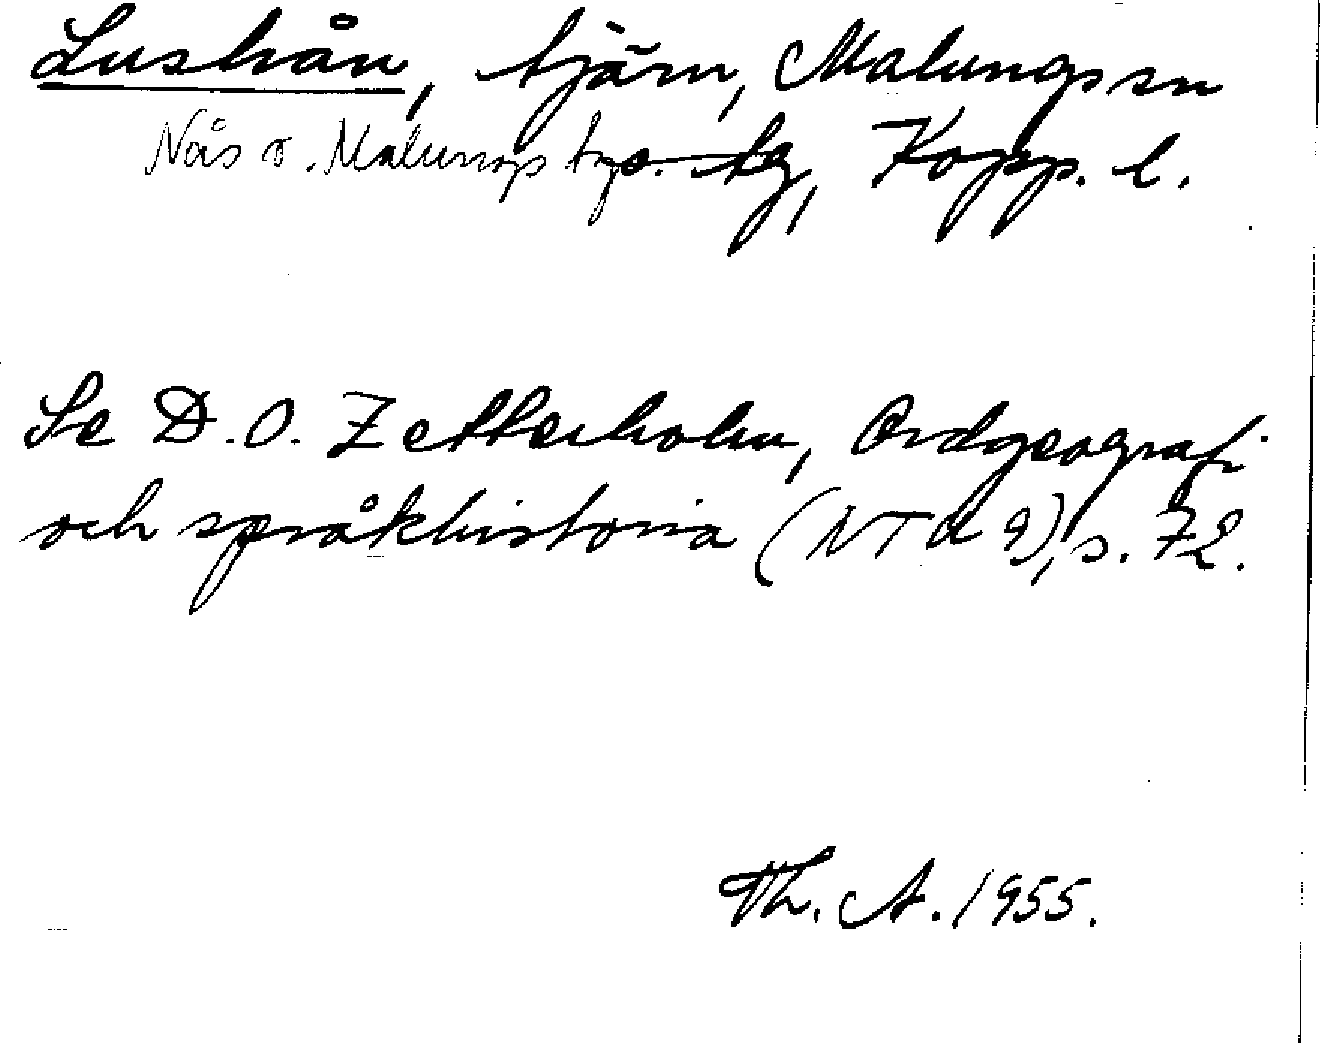 Lushån, tjärn, Malungs sn
Nås o. Malungs tg s. tg, Kopp. l.
Se D. O. Zetterholm, Ordgeografi
och språkhistoria (NTU 9), s. 72.
Th. A. 1955.